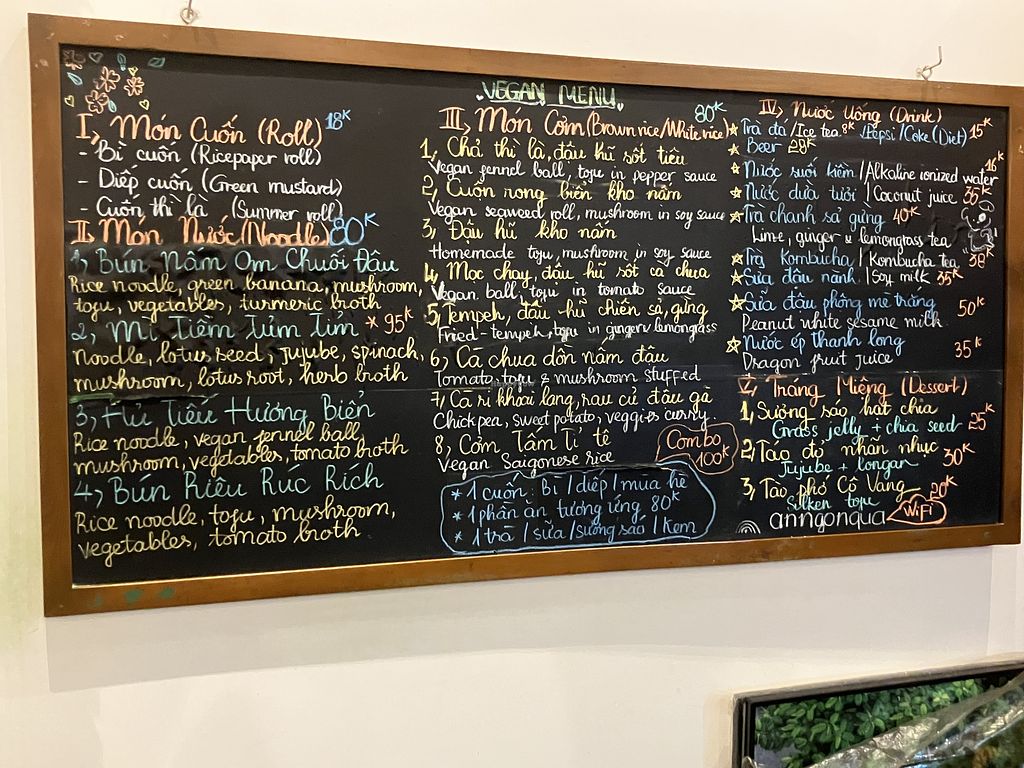 VEGAN MENU
I, Món Cuốn (Roll) 18K
- Bì cuốn (Ricepaper roll)
- Diếp cuốn (Green mustard)
- Cuốn thì là (Summer roll)
II, Món Nước (Noodle) 80K
1, Bún Nấm Om Chuối Đậu
Rice noodle, green banana, mushroom,
tofu, vegetables, turmeric broth
2, Mì Tiềm Tủm Tỉm * 95K
Noodle, lotus seed, jujube, spinach,
mushroom, lotus root, herb broth
3, Hủ Tiếu Hương Biển
Rice noodle, vegan fennel ball,
mushroom, vegetables, tomato broth
4, Bún Riêu Rúc Rích
Rice noodle, tofu, mushroom,
vegetables, tomato broth
III, Món Cơm (Brown rice/White rice) 80K
1, Chả thì là, đậu hũ sốt tiêu
Vegan fennel ball, tofu in pepper sauce
2, Cuộn rong biển kho nấm
Vegan seaweed roll, mushroom in soy sauce
3, Đậu hũ kho nấm
Homemade tofu, mushroom in soy sauce
4, Mọc chay, đậu hũ sốt cà chua
Vegan ball, tofu in tomato sauce
5, Tempeh, đậu hũ chiên sả, gừng
Fried-tempeh, tofu in ginger lemongrass
6, Cà chua dồn nấm đậu
Tomato, tofu & mushroom stuffed
7, Cà ri khoai lang, rau củ đậu gà
Chickpea, sweet potato, veggies curry.
8, Cơm Tấm Ti tê
Vegan Saigonese rice
Combo 100K
* 1 cuốn: bì / diếp / mùa hè
* 1 phần ăn tương ứng 80K
* 1 trà / sữa / sương sáo / kem
IV, Nước Uống (Drink)
Trà đá / Ice tea 8K / Pepsi / Coke (Diet) 15K
Beer 28K
Nước suối kiềm / Alkaline ionized water 16K
Nước dừa tươi / Coconut juice 35K
Trà chanh sả gừng 40K
Lime, ginger & lemongrass tea
Trà Kombucha / Kombucha tea 38K
Sữa đậu nành / Soy milk 35K
Sữa đậu phộng mè trắng 50K
Peanut white sesame milk
Nước ép thanh long 35K
Dragon fruit juice
V, Tráng Miệng (Dessert)
1, Sương sáo hạt chia 25K
Grass jelly + chia seed
2, Táo đỏ nhãn nhục 30K
Jujube + longan
3, Tào phớ Cô Vang 20K
Silken tofu
anngonqua WiFi